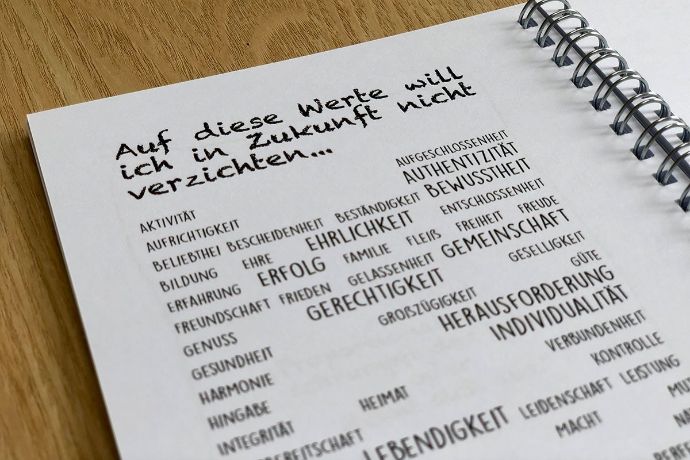 Auf diese Werte will
ich in Zukunft nicht
verzichten...
AKTIVITÄT AUFGESCHLOSSENHEIT
AUFRICHTIGKEIT AUTHENTIZITÄT
BELIEBTHEI BESCHEIDENHEIT BESTÄNDIGKEIT BEWUSSTHEIT
BILDUNG EHRE EHRLICHKEIT ENTSCHLOSSENHEIT
ERFAHRUNG ERFOLG FAMILIE FLEIß FREIHEIT FREUDE
FREUNDSCHAFT FRIEDEN GELASSENHEIT GEMEINSCHAFT
GENUSS GERECHTIGKEIT GESELLIGKEIT
GESUNDHEIT GROßZÜGIGKEIT GÜTE
HARMONIE HERAUSFORDERUNG
HINGABE INDIVIDUALITÄT
INTEGRITÄT HEIMAT VERBUNDENHEIT
KONTROLLE
LEBENDIGKEIT LEIDENSCHAFT LEISTUNG
MACHT